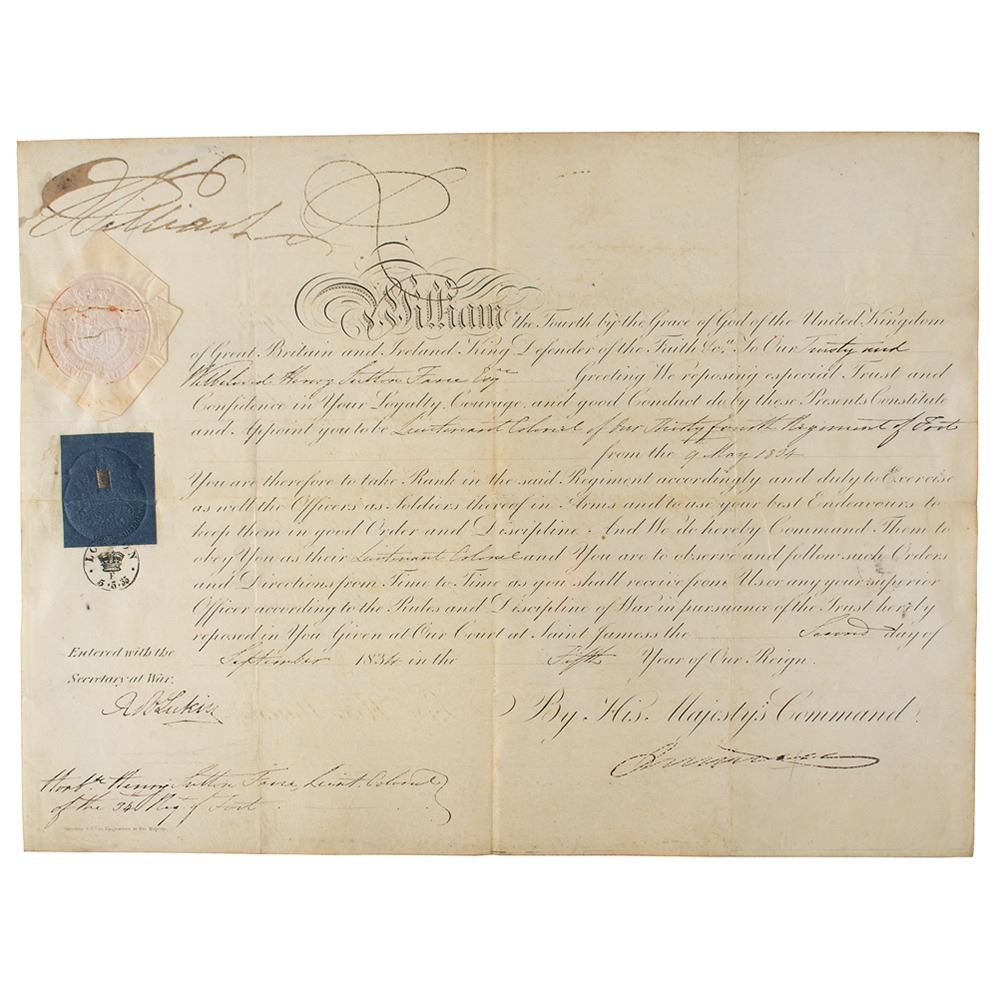 William R
William the Fourth by the Grace of God of the United Kingdom
of Great Britain and Ireland King Defender of the Faith &c.ᵃ To Our Trusty and
Wellbeloved Henry Sutton Fane Esqʳᵉ Greeting We reposing especial Trust and
Confidence in Your Loyalty, Courage, and good Conduct do by these Presents Constitute
and Appoint you to be Lieutenant Colonel of Our Thirty fourth Regiment of Foot
from the 9ᵗʰ May 1834
You are therefore to take Rank in the said Regiment accordingly and duly to Exercise
as well the Officers as Soldiers thereof in Arms and to use your best Endeavours to
keep them in good Order and Discipline. And We do hereby Command Them to
obey You as their Lieutenant Colonel and You are to observe and follow such Orders
and Directions from Time to Time as you shall receive from Us or any your superior
Officer according to the Rules and Discipline of War in pursuance of the Trust hereby
reposed in You Given at Our Court at Saint James's the Second day of
September 1834 in the Fifth Year of Our Reign.
By His Majesty's Command
LONDON
5.5.35
Entered with the
Secretary at War,
Honᵇˡᵉ Henry Sutton Fane, Lieut. Colonel
of the 34 Reg. of Foot